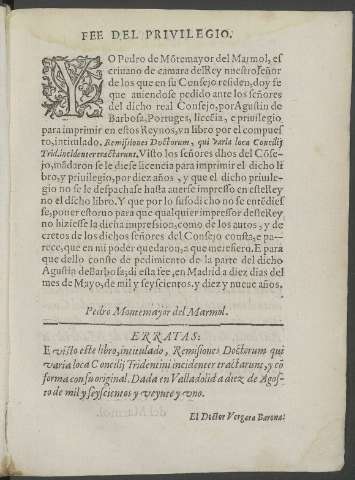 FEE DEL PRIVILEGIO.
YO Pedro de Mõtemayor del Marmol, es
criuano de camara del Rey nuestro señor
de los que en su Consejo residen, doy fe
que auiendose pedido ante los señores
del dicho real Consejo, por Agustin de
Barbosa, Portugues, licẽcia, e priuilegio
para imprimir en estos Reynos, vn libro por el compues
to, intitulado, Remisiones Doctorum, qui varia loca Concilij
Trid. incidenter tractarunt. Visto los señores dhos del Cõse-
jo, mãdaron se le diese licencia para imprimir el dicho li
bro, y priuilegio, por diez años, y que el dicho priuile-
gio no se le despachase hasta auerse impresso en este Rey
no el dicho libro. Y que por lo susodicho no se entẽdies
se, poner estoruo para que qualquier impressor deste Rey
no hiziesse la dicha impression, como de los autos, y de
cretos de los dichos señores del Consejo consta, e pa-
rece, que en mi poder quedarou, a que me refiero. E para
que dello conste de pedimiento de la parte del dicho
Agustin de Barbosa, di esta fee, en Madrid a diez dias del
mes de Mayo, de mil y seyscientos, y diez y nueue años.
Pedro Montemayor del Marmol.
ERRATAS:
E visto este libro, intitulado, Remisiones Doctorum qui
varia loca Concilij Tridentini incidenter tractarunt, y cõ
forma con su original. Dada en Valladolid a diez de Agos-
to de mil y seyscientos y veynte y vno.
El Doctor Vergara Barona: